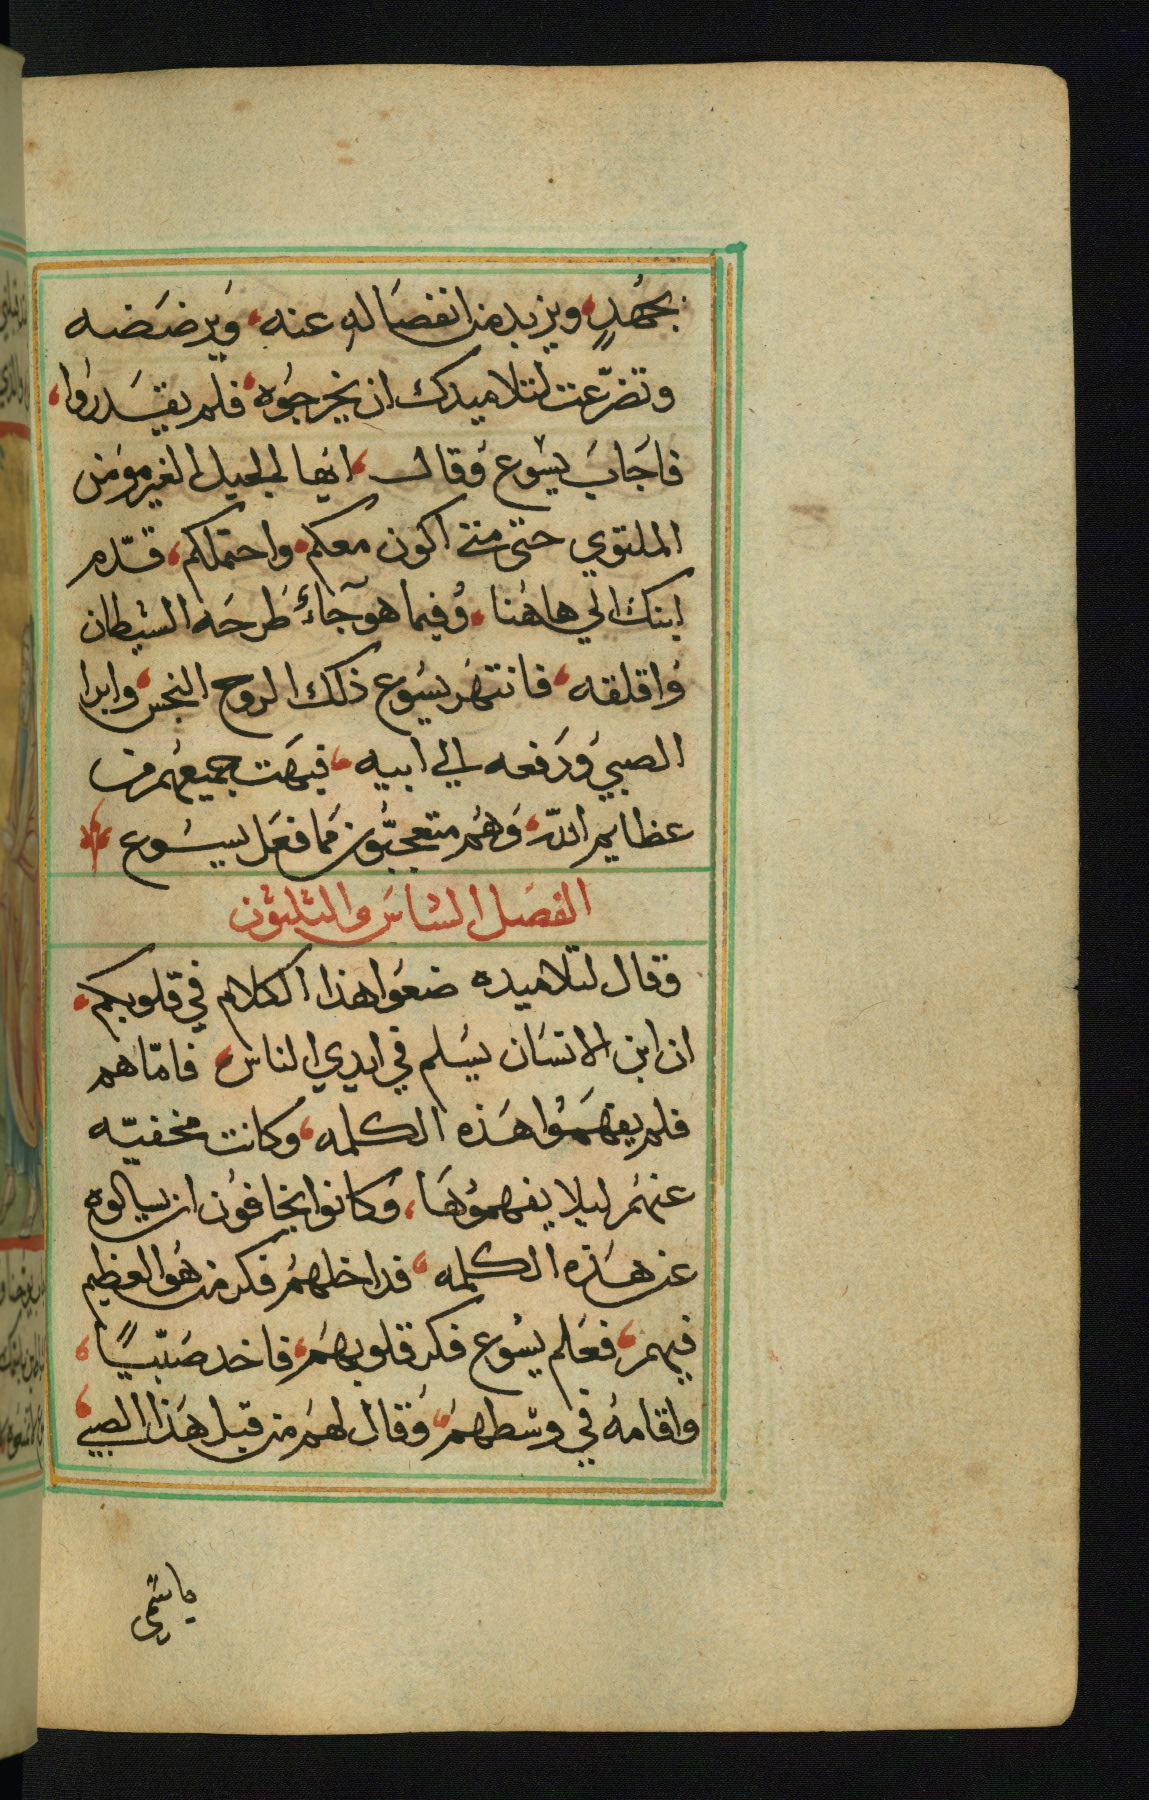 بجَهُدٍ، ويزيد من انفصَاله عنه، وَيرضضه
وتضرّعت لتلاميدك ان يخرجوُه، فلم يقدرُوا،
فاجَابَ يسُوع وُقال، ايُها الجيل الغير مومن
الملتوي حتى متى اكون معكم، واحتملكم، قدّم
ابنك الي هاهُنا، وُفيما هو جاءُ طَرحَه الشيطان
وُاقلقه، فانتهَر يسُوع ذلك الروح النجس، وابرا
الصبي وُدَفعه الي ابيه، فبهَت جميعهُم من
عظايم الله، وَهُم متعجبُّون مما فعَل يسُوع
الفصَل السَادس والثلثون
وُقال لتلاميده ضعَوا هذا الكلام في قلوبكم،
ان ابن الانسَان يسَلم في ايدي الناس، فامّا هم
فلم يفهَموُا هَذه الكلمه، وكانت مخفيّه
عنهُم ليلا يفهموُهَا، وَكانوا يخافوُن ان يسالوه
عن هَذه الكلمه، فداخلهمُ فكر من هُو العظيم
فيهم، فعَلم يسُوع فكر قلوبهَم، فاخد صَبيّاً،
واقامهُ في وسَطهمُ، وُقال لهُم من قبل هَذا الصبي،